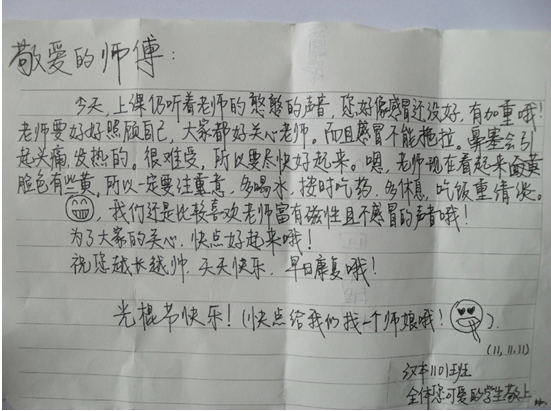 敬爱的师傅：
今天，上课仍听着老师的憨憨的声音，您好像感冒还没好，有加重哦！
老师要好好照顾自己，大家都好关心老师。而且感冒不能拖拉。鼻塞会引
起头痛，发热的。很难受，所以要尽快好起来。嗯，老师现在看起来面黄
脸色有些黄，所以一定要注重意，多喝水，按时吃药，多休息，吃饭重清淡。
，我们还是比较喜欢老师富有磁性且不感冒的声音哦！
为了大家的关心，快点好起来哦！
祝您越长越帅，天天快乐，早日康复哦！
光棍节快乐！(快点给我们找一个师娘哦！)
(11.11.11)
汉本1101班
全体您可爱的学生敬上